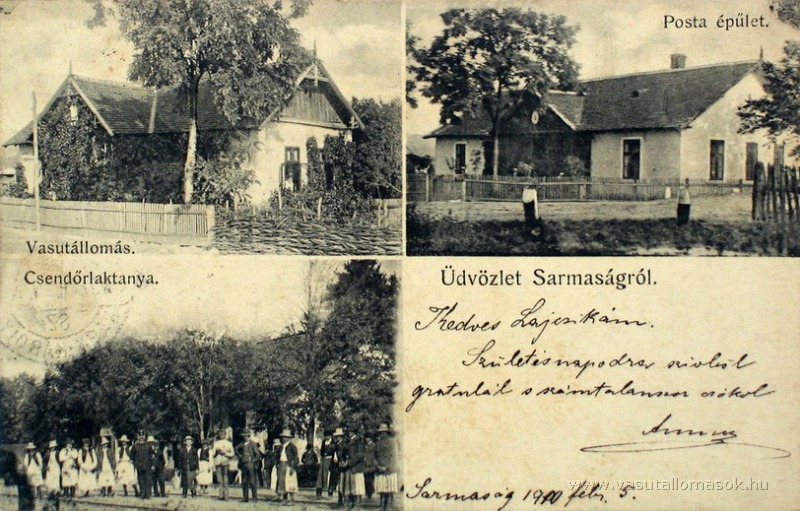 Posta épület.
Vasutállomás.
Csendőrlaktanya.
Üdvözlet Sarmaságról.
Kedves Lajcsikám.
Születésnapodra szivből
gratulál s számtalanszor csókol
Sarmaság 1910 febr. 5.
© www.vasutallomasok.hu